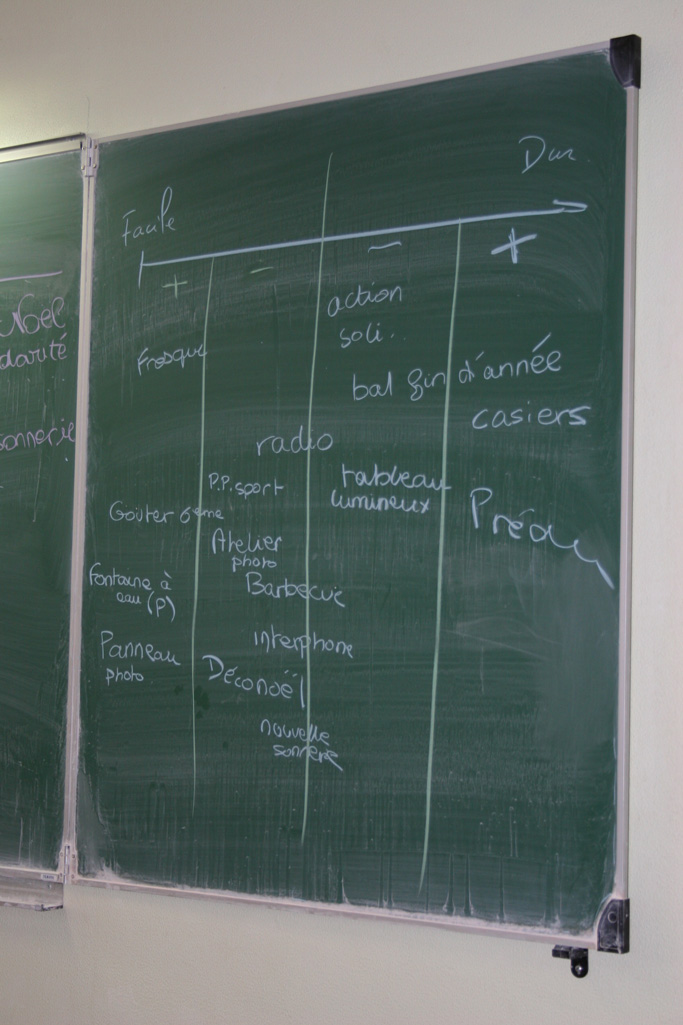 Noël
darité
sonnerie
Facile
Dur
+ - - +
action
soli.
Fresque
bal fin d'année
casiers
radio
P.P. sport
tableau
lumineux
Goûter 6ème
Préau
Atelier
photo
Fontaine à
eau (P)
Barbecue
Panneau
photo
interphone
Déconoël
nouvelle
sonnerie